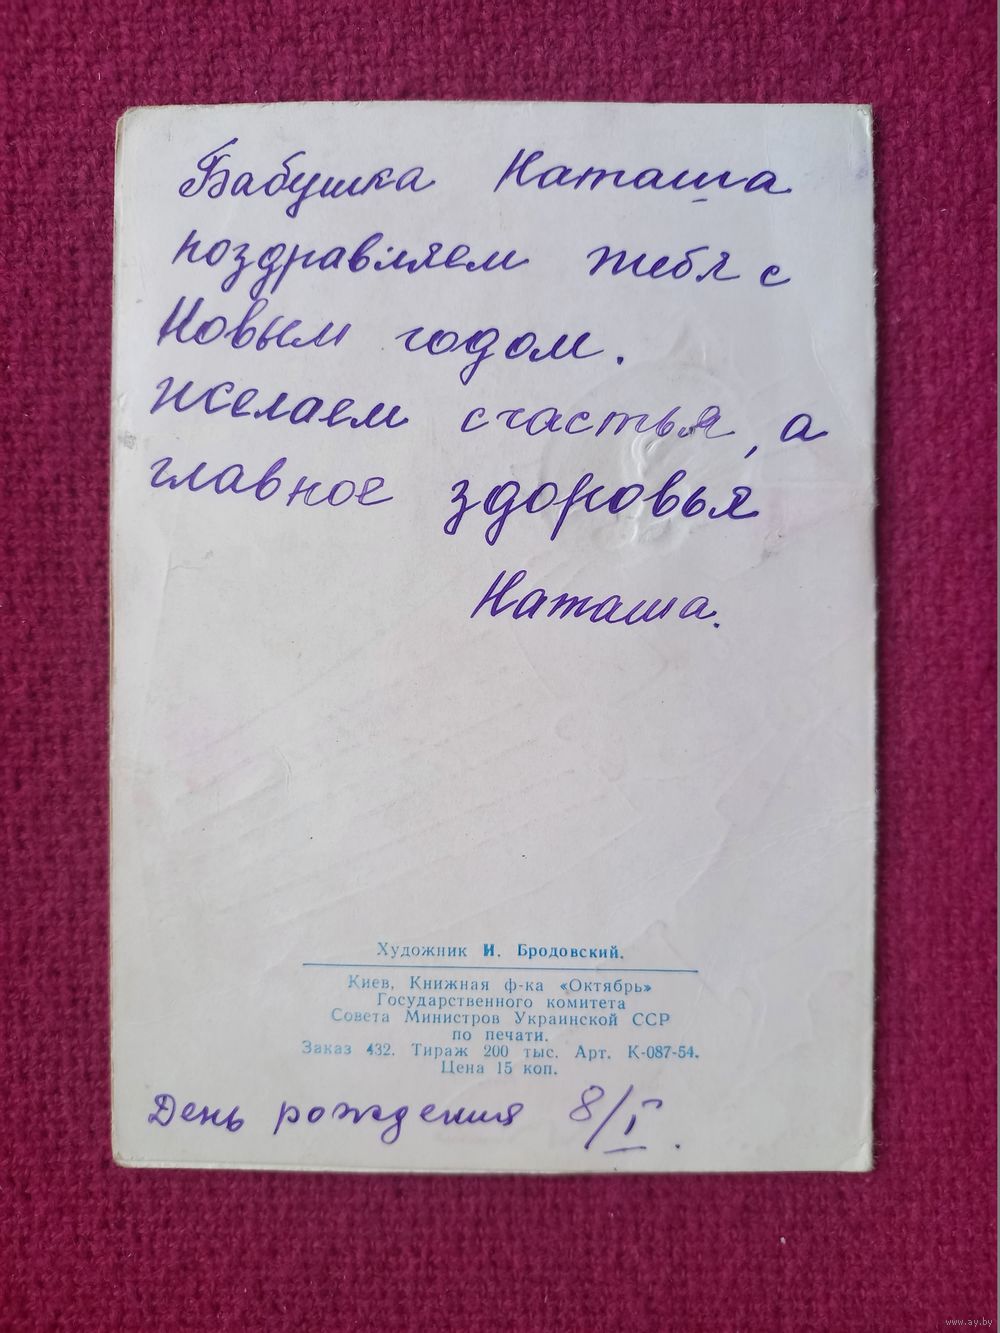 Бабушка Наташа
поздравляем тебя с
Новым годом.
Желаем счастья, а
главное здоровья
Наташа.
Художник И. Бродовский.
Киев, Книжная ф-ка «Октябрь»
Государственного комитета
Совета Министров Украинской ССР
по печати.
Заказ 432. Тираж 200 тыс. Арт. К-087-54.
Цена 15 коп.
День рождения 8/I.
www.ay.by